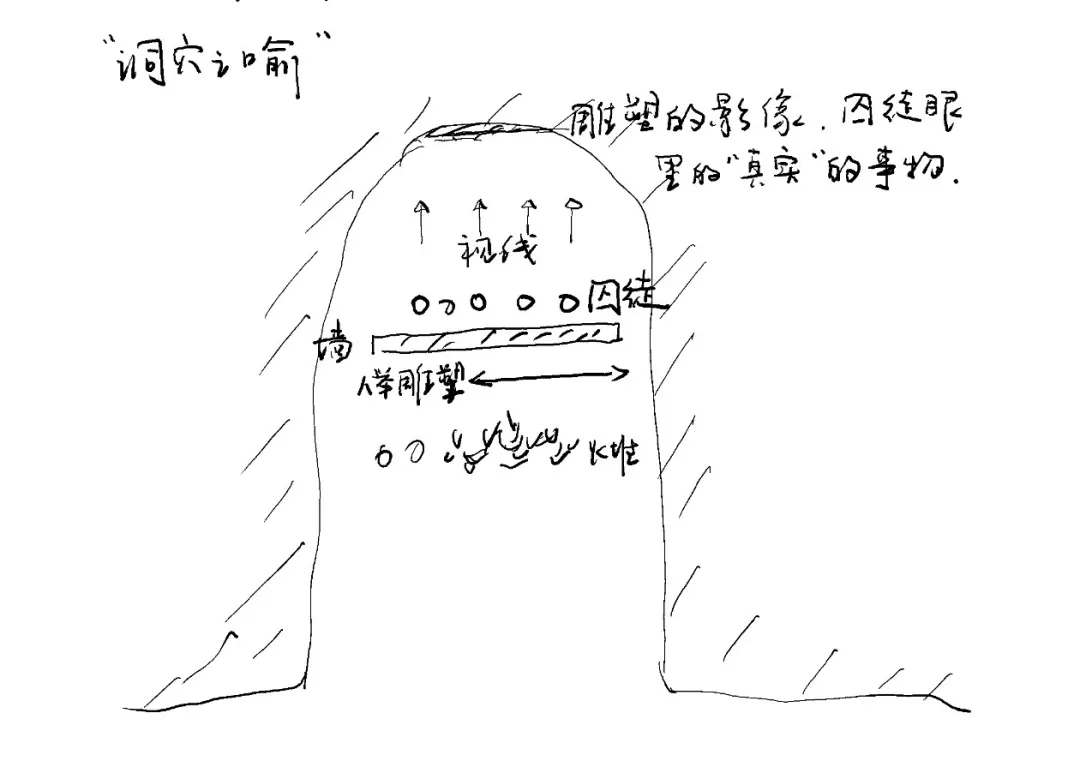 “洞穴之喻”
雕塑的影像．囚徒眼
里的“真实”的事物．
视线
囚徒
墙
人举雕塑
火堆